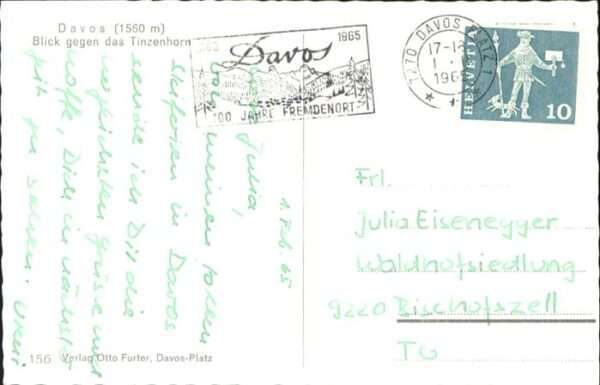 Davos (1560 m)
Blick gegen das Tinzenhorn
1965
Davos
100 JAHRE FREMDENORT
7270 DAVOS PLATZ 1
17-18
1
1965
HELVETIA
10
1. Feb. 65
Julia,
Von meinen
Skiferien in Davos
sende ich Dir die
Grüsse und
hoffe, Dich in nächster
Zeit zu sehen.
Frl.
Julia Eisenegger
Waldhofsiedlung
9220 Bischofszell
TG
156 Verlag Otto Furter, Davos-Platz